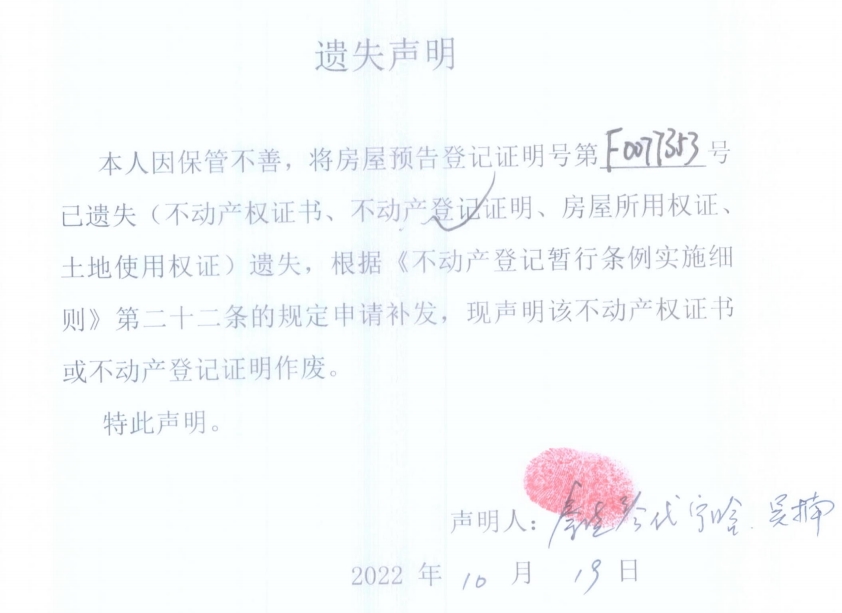 遗失声明
本人因保管不善，将房屋预告登记证明号第F0077353号
已遗失（不动产权证书、不动产登记证明、房屋所用权证、
土地使用权证）遗失，根据《不动产登记暂行条例实施细
则》第二十二条的规定申请补发，现声明该不动产权证书
或不动产登记证明作废。
特此声明。
声明人：代宁晗.吴楠
2022 年 10 月 19 日